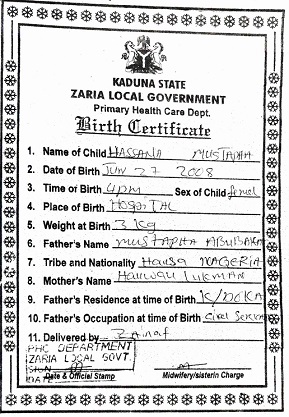 KADUNA STATE
ZARIA LOCAL GOVERNMENT
Primary Health Care Dept.
Birth Certificate
1. Name of Child HASSANA MUSTAPHA
2. Date of Birth JUN 27 2008
3. Time of Birth 4pm Sex of Child femal
4. Place of Birth HOSPITAL
5. Weight at Birth 3 Kg
6. Father's Name MUSTAPHA ABUBAKAR
7. Tribe and Nationality Hausa NAGERIA
8. Mother's Name LUKMAN
9. Father's Residence at time of Birth K/DOKA
10. Father's Occupation at time of Birth Civel
11. Delivered by Zainaf
PHC DEPARTMENT
ZARIA LOCAL GOVT.
SIGN
DATE
Date & Official Stamp Midwifery/sisterin Charge